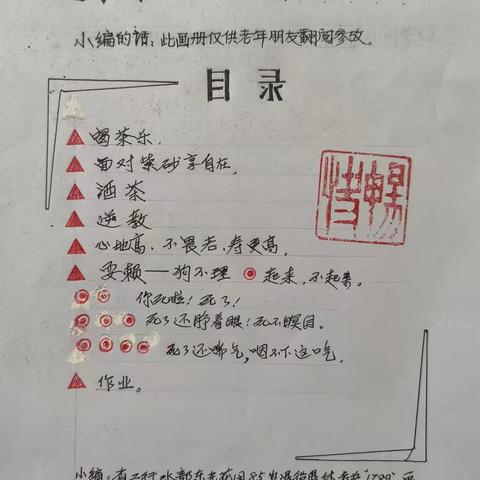 小编的话:此画册仅供老年朋友翻阅参改。
目录
喝茶乐,
面对紫砂享自在,
酒茶
逆教
心地高、不畏老,寿更高,
耍赖——狗不理 起来,不起来。
你死啦!死了!
死了还睁着眼!死不瞑目。
死了还喘气,咽不下这口气,
作业。
小编: